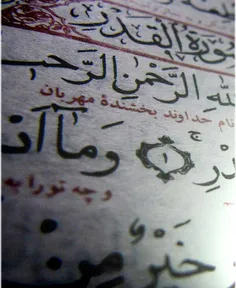 سُورَةُ الْقَدْرِ
اللَّهِ الرَّحْمَٰنِ الرَّحِ
نام خداوند بخشندهٔ مهربان
دْرِ ۝١ وَمَآ أَ
و چه تو را به
خَيْرٌ مِنْ